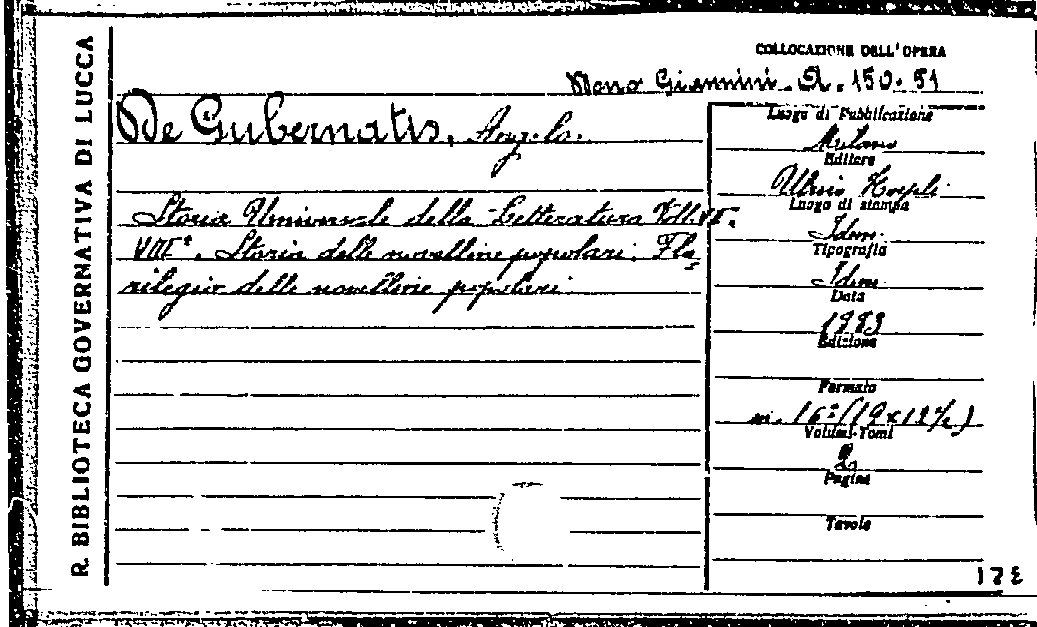 R. BIBLIOTECA GOVERNATIVA DI LUCCA
COLLOCAZIONE DELL'OPERA
Mono Giannini. A. 150. 51
De Gubernatis, Angelo.
Storia Universale della Letteratura Voll. VII°.
VIII°. Storia delle novelline popolari. Flo=
rilegio delle novelline popolari.
Luogo di Pubblicazione
Milano
Editore
Ulrico Hoepli
Luogo di stampa
Idem.
Tipografia
Idem
Data
1883
Edizione
Formato
in. 16° (19x12½)
Volumi-Tomi
2
Pagine
Tavole